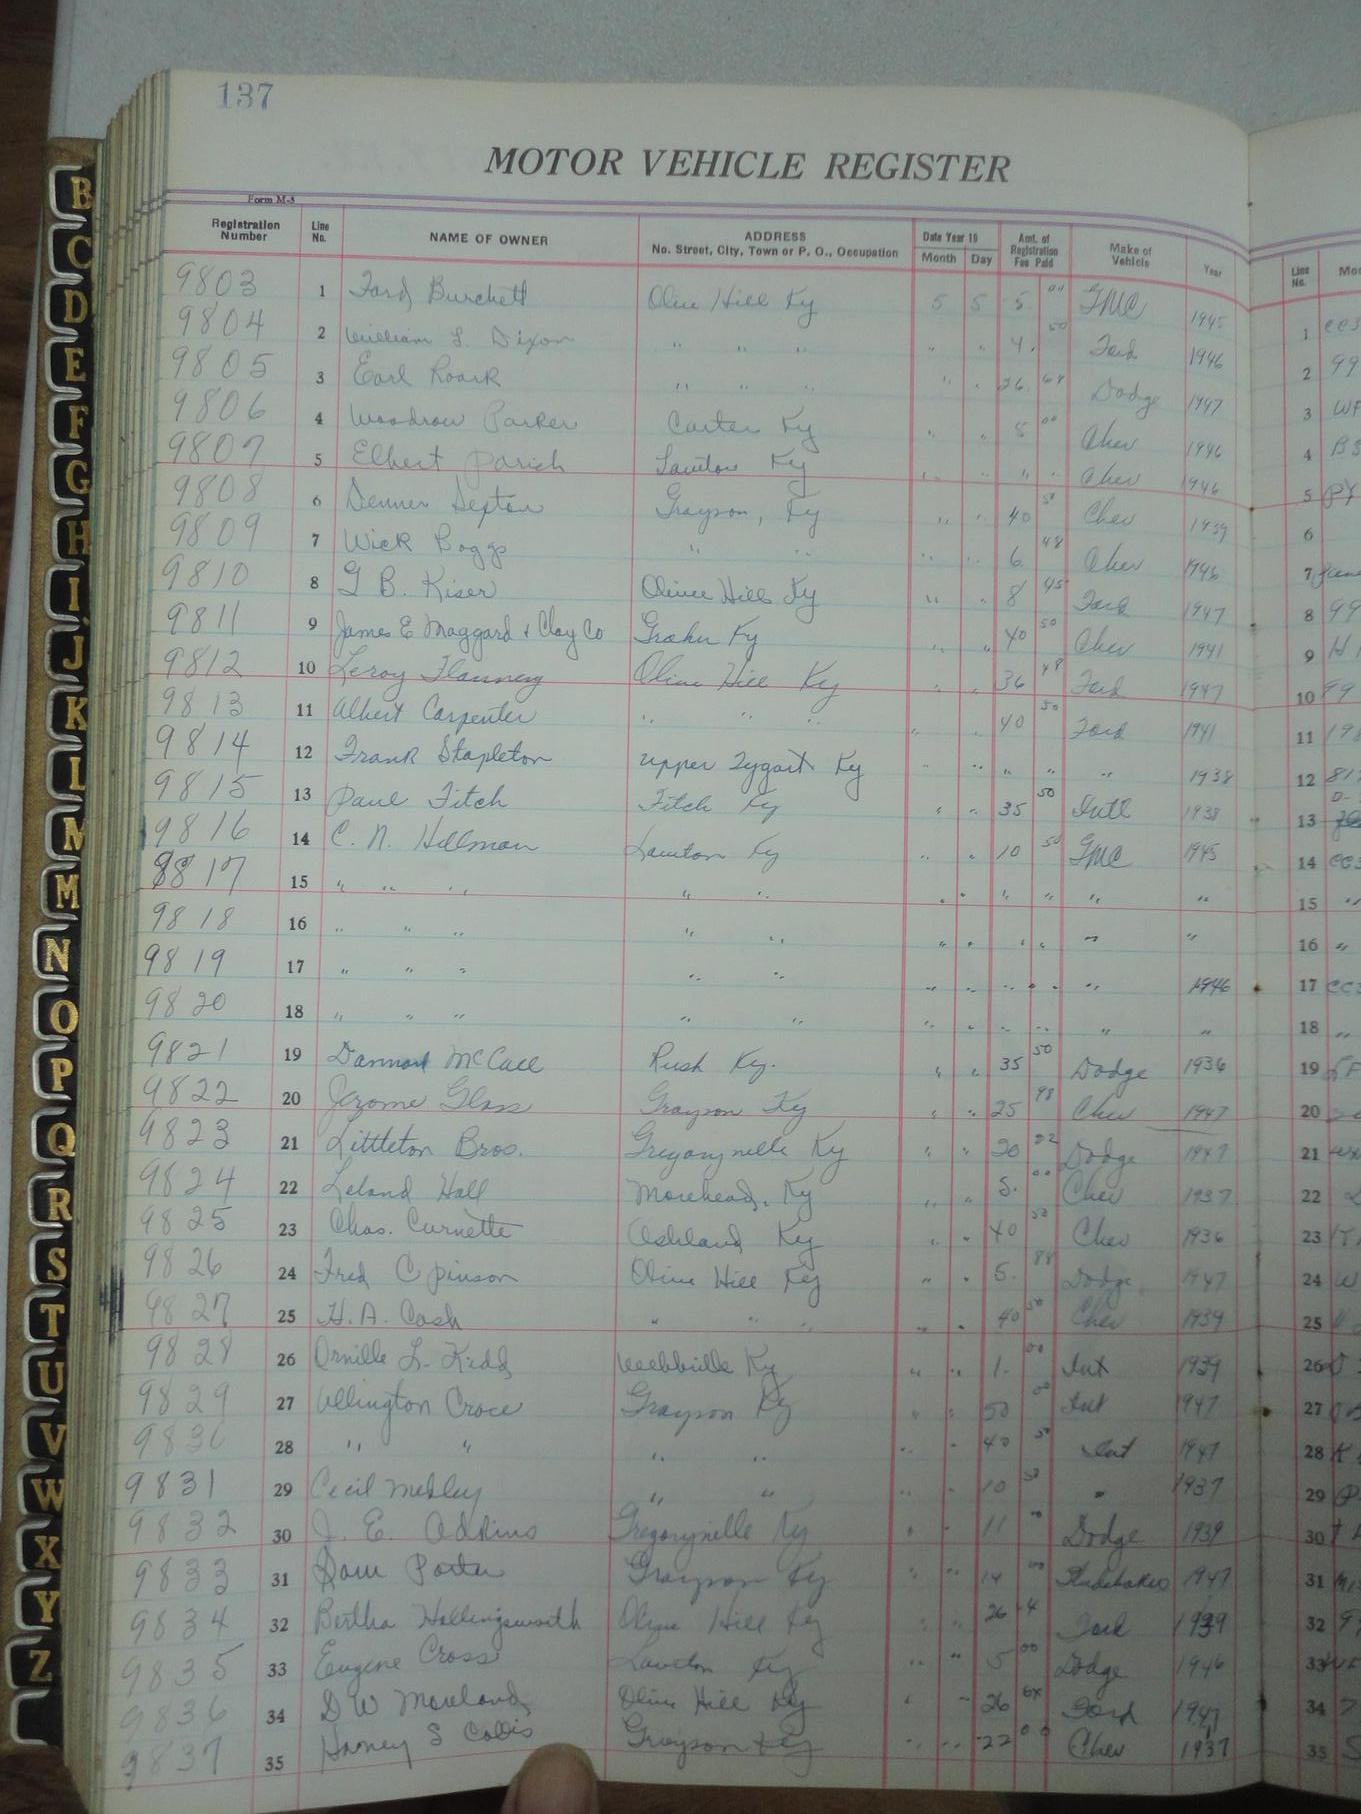 137
MOTOR VEHICLE REGISTER
Form M-5
Registration Number Line No. NAME OF OWNER ADDRESS No. Street, City, Town or P. O., Occupation Date Year 19 Month Day Amt. of Registration Fee Paid Make of Vehicle Year Line No.
9803 1 Ford Burchett Olive Hill Ky 5 5 5. 00 GMC 1945 1
9804 2 William L. Dixon " " " " " 4. 50 Ford 1946 2 99
9805 3 Earl Roark " " " " " 26. 68 Dodge 1947 3
9806 4 Woodrow Parker Carter Ky " " 5 00 Chev 1946 4
9807 5 Elbert Parish Lawton Ky " " " " Chev 1946 5
9808 6 Denver Sexton Grayson, Ky " " 40 50 Chev 1939 6
9809 7 Wick Boggs " " " " 6 48 Chev 1946 7
9810 8 G B. Kiser Olive Hill Ky " " 8 45 Ford 1947 8 99
9811 9 James E Maggard & Clay Co Grahn Ky " " 40 50 Chev 1941 9
9812 10 Leroy Flannery Olive Hill Ky " " 36 48 Ford 1947 10 99
9813 11 Albert Carpenter " " " " " 40 50 Ford 1941 11
9814 12 Frank Stapleton Upper Tygart Ky " " " " " 1938 12
9815 13 Paul Fitch Fitch Ky " " 35 50 Intl 1938 13
9816 14 C. N. Hillman Lawton Ky " " 10 50 GMC 1945 14
9817 15 " " " " " " " " " " " 15
9818 16 " " " " " " " " " " " 16 "
9819 17 " " " " " " " " " " 1946 17
9820 18 " " " " " " " " " " " 18 "
9821 19 McCall Rush Ky. " " 35 50 Dodge 1936 19
9822 20 Jerome Glass Grayson Ky " " 25 98 Chev 1947 20
9823 21 Littleton Bros. Gregoryville Ky " " 20 22 Dodge 1947 21
9824 22 Leland Hall Morehead, Ky " " 5. 00 Chev 1937 22
9825 23 Chas. Curnette Ashland Ky " " 40 50 Chev 1936 23
9826 24 Fred C Pinson Olive Hill Ky " " 5. 88 Dodge 1947 24
9827 25 H. A. Cash " " " " " 40 50 Chev 1939 25
9828 26 Orville L. Kidd Webbville Ky " " 1. 00 Int 1939 26
9829 27 Wellington Croce Grayson Ky " " 50 00 Int 1947 27
9830 28 " " " " " " 40 50 Int 1947 28
9831 29 Cecil Medley " " " " 10 50 " 1937 29
9832 30 J. E. Adkins Gregoryville Ky " " 11 Dodge 1939 30
9833 31 Porter Grayson Ky " " 14 00 Studebaker 1947 31
9834 32 Bertha Hollingsworth Olive Hill Ky " " 26 Ford 1939 32
9835 33 Eugene Cross Lawton Ky " " 5 00 Dodge 1946 33
9836 34 D W Moreland Olive Hill Ky " " 26 Ford 1947 34
9837 35 Harvey S Grayson Ky " " 22 00 Chev 1937 35
B
C
D
E
F
G
H
I
J
K
L
M
M
N
O
P
Q
R
S
T
U
V
W
X
Y
Z